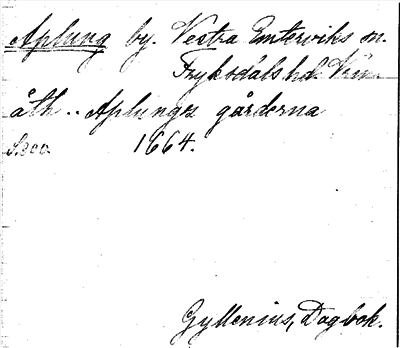 Aplung by. Vestra Emterviks sn.
Fryksdals hd. Verm.
åth.. Aplungs gårderna
1664.
Gyllenius, Dagbok.